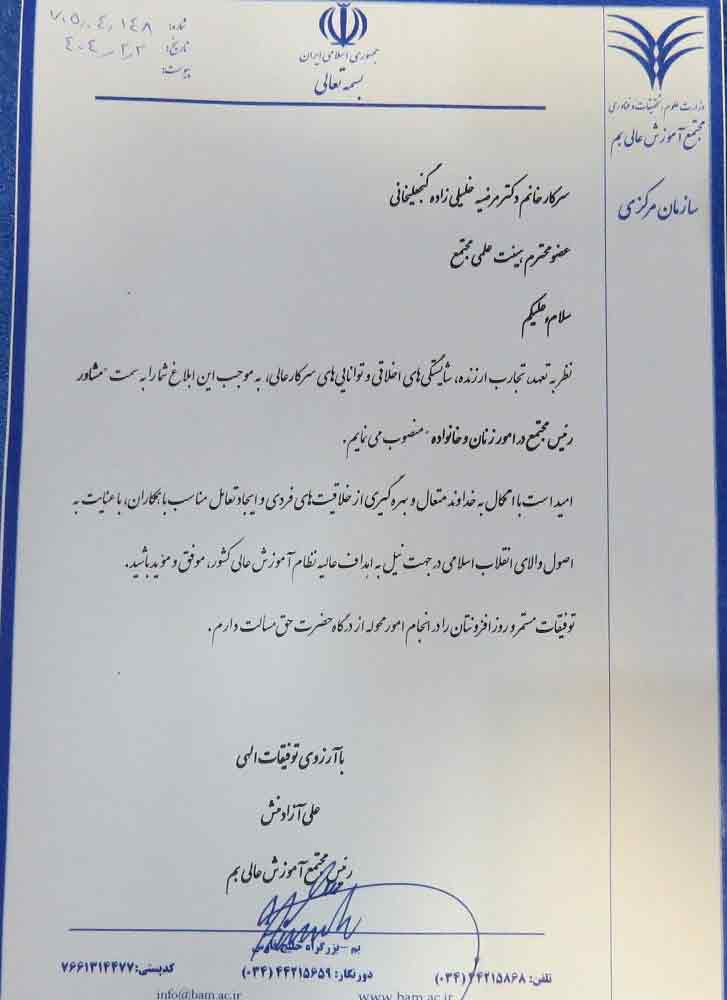 جمهوری اسلامی ایران
بسمه تعالی
شماره: ۷۰۵٫۰۴٫۱۴۸
تاریخ: ۴۰۴٫۲٫۲
پیوست:
وزارت علوم، تحقیقات و فناوری
مجتمع آموزش عالی بم
سازمان مرکزی
سرکار خانم دکتر مرضیه خلیلی زاده گنجعلیخانی
عضو محترم هیئت علمی مجتمع
سلام علیکم
نظر به تعهد، تجارب ارزنده، شایستگی های اخلاقی و توانایی های سرکارعالی، به موجب این ابلاغ شما را به سمت "مشاور
رئیس مجتمع در امور زنان و خانواده" منصوب می نمایم.
امید است با اتکال به خداوند متعال و بهره گیری از خلاقیت های فردی و ایجاد تعامل مناسب با همکاران، با عنایت به
اصول والای انقلاب اسلامی در جهت نیل به اهداف عالیه نظام آموزش عالی کشور، موفق و مؤید باشید.
توفیقات مستمر و روزافزونتان را در انجام امور محوله از درگاه حضرت حق مسالت دارم.
با آرزوی توفیقات الهی
علی آزادمنش
رئیس مجتمع آموزش عالی بم
بم - بزرگراه خلیج فارس
تلفن: ۴۴۲۱۵۸۶۸ (۰۳۴) دورنگار: ۴۴۲۱۵۶۵۹ (۰۳۴) کدپستی: ۷۶۶۱۳۱۴۴۷۷
www.bam.ac.ir info@bam.ac.ir